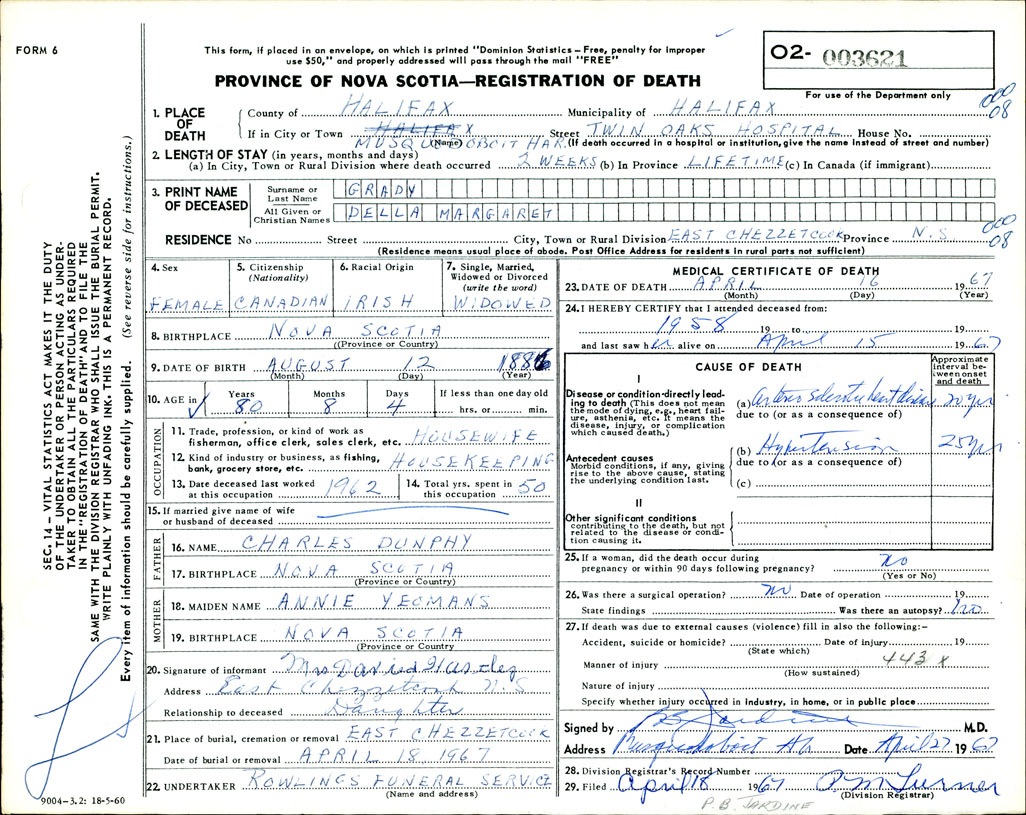 FORM 6
This form, if placed in an envelope, on which is printed "Dominion Statistics – Free, penalty for improper
use $50," and properly addressed will pass through the mail "FREE"
PROVINCE OF NOVA SCOTIA—REGISTRATION OF DEATH
02- 003621
For use of the Department only
000
08
SEC. 14 – VITAL STATISTICS ACT MAKES IT THE DUTY
OF THE UNDERTAKER OR PERSON ACTING AS UNDER-
TAKER TO OBTAIN ALL THE PARTICULARS REQUIRED
IN THE "REGISTRATION OF DEATH" AND TO FILE THE
SAME WITH THE DIVISION REGISTRAR WHO SHALL ISSUE THE BURIAL PERMIT.
WRITE PLAINLY WITH UNFADING INK. THIS IS A PERMANENT RECORD.
Every item of information should be carefully supplied. (See reverse side for instructions.)
1. PLACE OF DEATH
County of HALIFAX Municipality of HALIFAX
If in City or Town HALIFAX Street TWIN OAKS HOSPITAL House No.
MUSQUODOBOIT HAR. (Name) (If death occurred in a hospital or institution, give the name instead of street and number)
2. LENGTH OF STAY (in years, months and days)
(a) In City, Town or Rural Division where death occurred 2 WEEKS (b) In Province LIFETIME (c) In Canada (if immigrant)
3. PRINT NAME OF DECEASED
Surname or Last Name GRADY
All Given or Christian Names DELLA MARGARET
000
08
RESIDENCE No Street City, Town or Rural Division EAST CHEZZETCOCK Province N.S.
(Residence means usual place of abode. Post Office Address for residents in rural parts not sufficient)
4. Sex FEMALE
5. Citizenship (Nationality) CANADIAN
6. Racial Origin IRISH
7. Single, Married, Widowed or Divorced (write the word) WIDOWED
8. BIRTHPLACE NOVA SCOTIA
(Province or Country)
9. DATE OF BIRTH AUGUST 12 1886
(Month) (Day) (Year)
10. AGE in Years 80 Months 8 Days 4 If less than one day old hrs. or min.
OCCUPATION
11. Trade, profession, or kind of work as
fisherman, office clerk, sales clerk, etc. HOUSEWIFE
12. Kind of industry or business, as fishing,
bank, grocery store, etc. HOUSEKEEPING
13. Date deceased last worked at this occupation 1962
14. Total yrs. spent in this occupation 50
15. If married give name of wife
or husband of deceased
FATHER
16. NAME CHARLES DUNPHY
17. BIRTHPLACE NOVA SCOTIA
(Province or Country)
MOTHER
18. MAIDEN NAME ANNIE YEOMANS
19. BIRTHPLACE NOVA SCOTIA
(Province or Country)
20. Signature of informant Mrs David
Address East Chezzetcook N.S
Relationship to deceased Daughter
21. Place of burial, cremation or removal EAST CHEZZETCOCK
Date of burial or removal APRIL 18, 1967
22. UNDERTAKER ROWLINGS FUNERAL SERVICE
(Name and address)
9004–3.2: 18-5-60
MEDICAL CERTIFICATE OF DEATH
23. DATE OF DEATH APRIL 16 1967
(Month) (Day) (Year)
24. I HEREBY CERTIFY that I attended deceased from:
1958 19 to 19
and last saw her alive on April 15 1967
CAUSE OF DEATH
Approximate interval between onset and death
I
Disease or condition directly lead-
ing to death (This does not mean
the mode of dying, e.g., heart fail-
ure, asthenia, etc. It means the
disease, injury, or complication
which caused death.)
(a) 20 yrs
due to (or as a consequence of)
(b) Hypertension 25 yrs
due to (or as a consequence of)
(c)
Antecedent causes
Morbid conditions, if any, giving
rise to the above cause, stating
the underlying condition last.
II
Other significant conditions
contributing to the death, but not
related to the disease or condi-
tion causing it.
25. If a woman, did the death occur during
pregnancy or within 90 days following pregnancy? No
(Yes or No)
26. Was there a surgical operation? No Date of operation 19
State findings Was there an autopsy? No
27. If death was due to external causes (violence) fill in also the following:–
Accident, suicide or homicide? Date of injury 19
(State which)
443 x
Manner of injury
(How sustained)
Nature of injury
Specify whether injury occurred in industry, in home, or in public place
Signed by P.B. Jardine M.D.
Address Musquodoboit Hb Date April 27 1967
28. Division Registrar's Record Number
29. Filed April 18 1967 P.M. Turner
(Division Registrar)
P.B. JARDINE